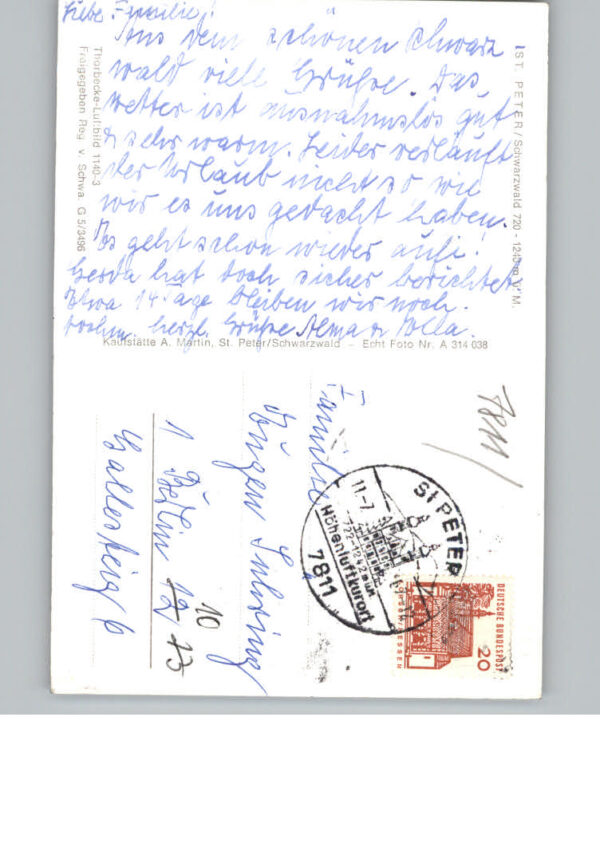 Liebe Familie!
Aus dem schönen Schwarz
wald viele Grüße. Das
Wetter ist ausnahmslos gut
& sehr warm. Leider verläuft
der Urlaub nicht so wie
wir es uns gedacht haben.
Es geht schon wieder auf!
Gerda hat doch sicher berichtet
Etwa 14 Tage bleiben wir noch.
Nochm. herzl. Grüße Alma &
Kaufstätte A. Martin, St. Peter/Schwarzwald – Echt Foto Nr. A 314 038
ST. PETER/Schwarzwald 720 - 1243 m ü. M.
Thorbecke-Luftbild 1140-3
Freigegeben Reg. v. Schwa G 5/3496
7811/
Familie
Eugen
1 Berlin 12 13
10
6
ST PETER
11.-7
722-1242 m ü.M
Höhenluftkurort
7811
DEUTSCHE BUNDESPOST
20
LORSCH/HESSEN